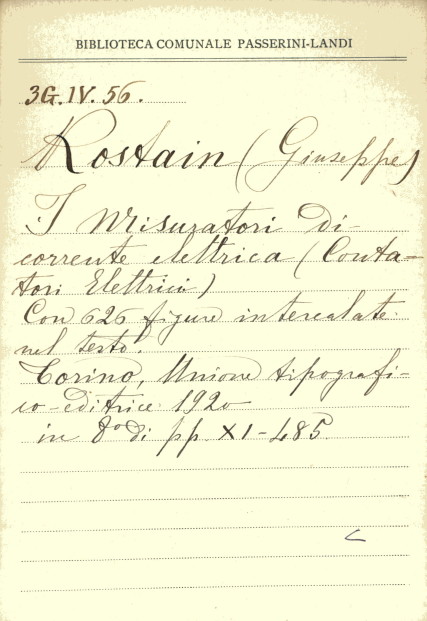 BIBLIOTECA COMUNALE PASSERINI-LANDI
3G.IV.56.
Rostain (Giuseppe)
I Misuratori di
corrente elettrica (Conta-
tori Elettrici)
Con 626 figure intercalate
nel testo.
Torino, Unione tipografi-
co-editrice 1920
in 8° di pp. XI-485.